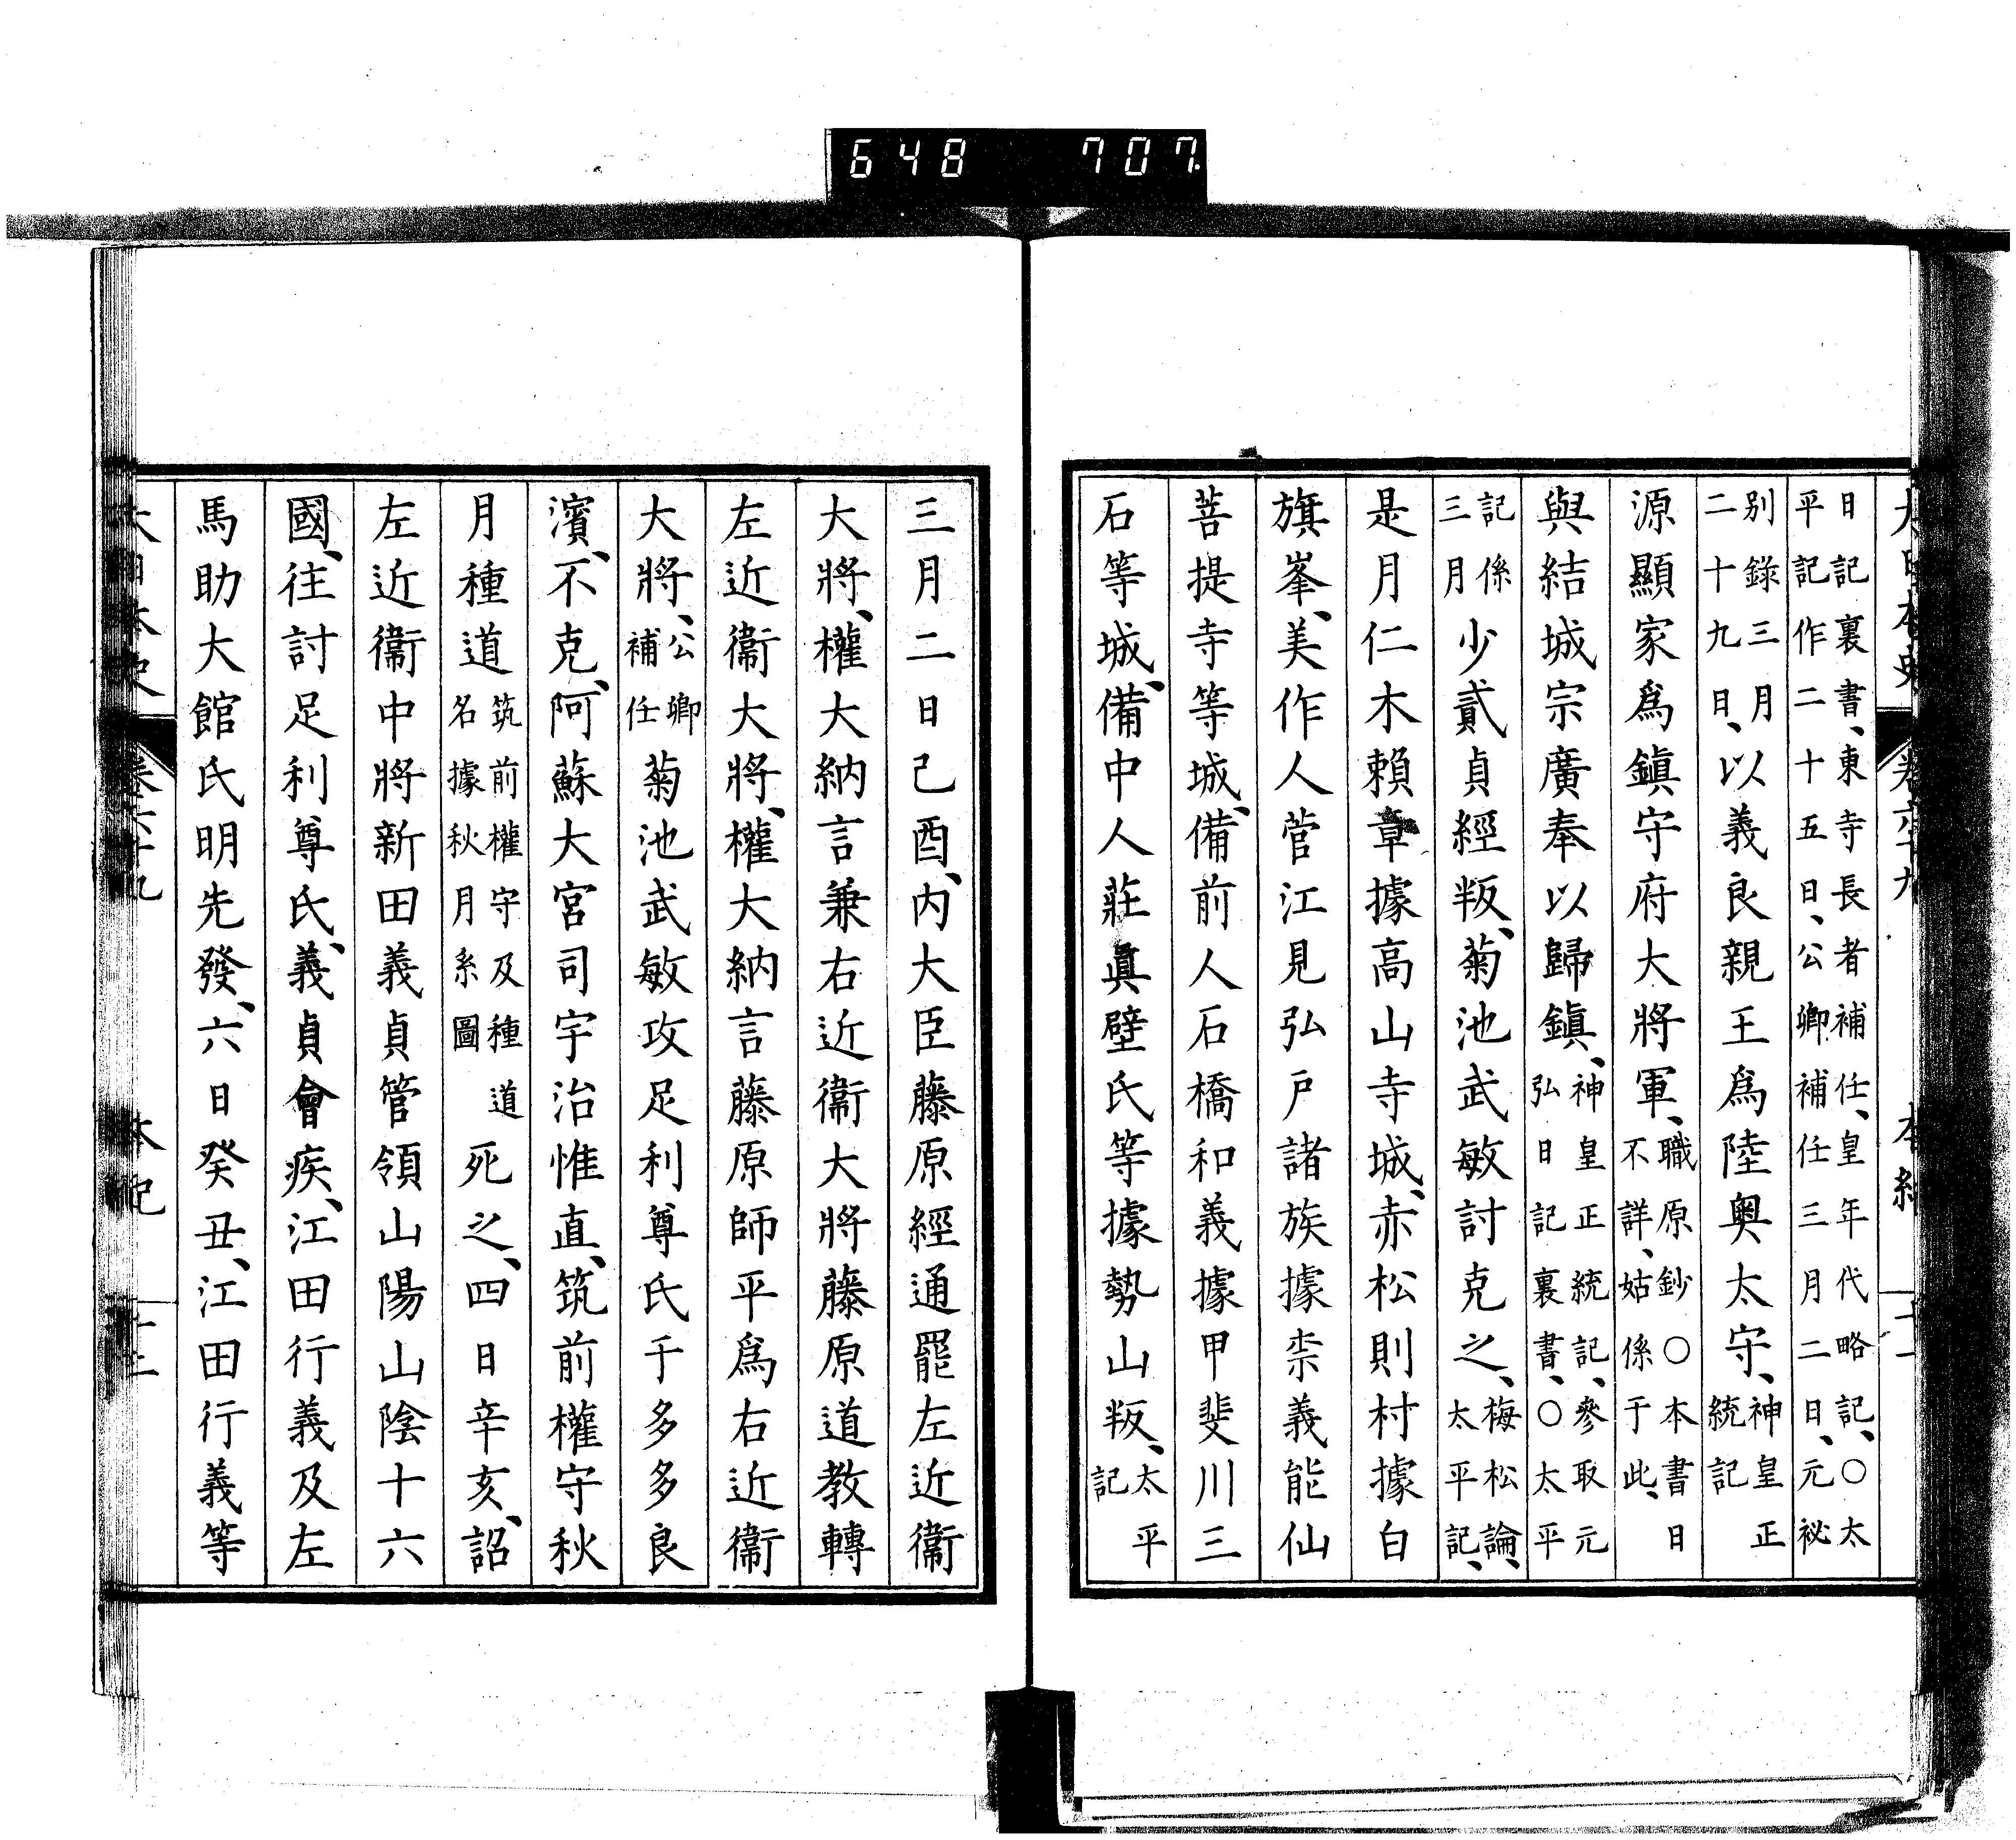 648 707
大日本史 卷六十九 本紀 十一
日記裏書、東寺長者補任、皇年代略記、○太
平記作二十五日、公卿補任三月二日、元祕
別錄三月
二十九日、以義良親王爲陸奧太守、神皇正統記
源顯家爲鎭守府大將軍、職原鈔○本書日不詳、姑係于此、
與結城宗廣奉以歸鎭、神皇正統記、參取元弘日記裏書、○太平
記係三月少貳貞經叛、菊池武敏討克之、梅松論、太平記、
是月仁木賴章據高山寺城、赤松則村據白
旗峯、美作人菅江見弘戶諸族據柰義能仙
菩提寺等城、備前人石橋和義據甲斐川三
石等城、備中人莊眞壁氏等據勢山叛、太平記
三月二日己酉、内大臣藤原經通罷左近衞
大將、權大納言兼右近衞大將藤原道教轉
左近衞大將、權大納言藤原師平爲右近衞
大將、公卿補任菊池武敏攻足利尊氏于多多良
濱、不克、阿蘇大宮司宇治惟直、筑前權守秋
月種道筑前權守及種道名據秋月系圖死之、四日辛亥、詔
左近衞中將新田義貞管領山陽山陰十六
國、往討足利尊氏、義貞會疾、江田行義及左
馬助大館氏明先發、六日癸丑、江田行義等
大日本史 卷六十九 本紀 十二